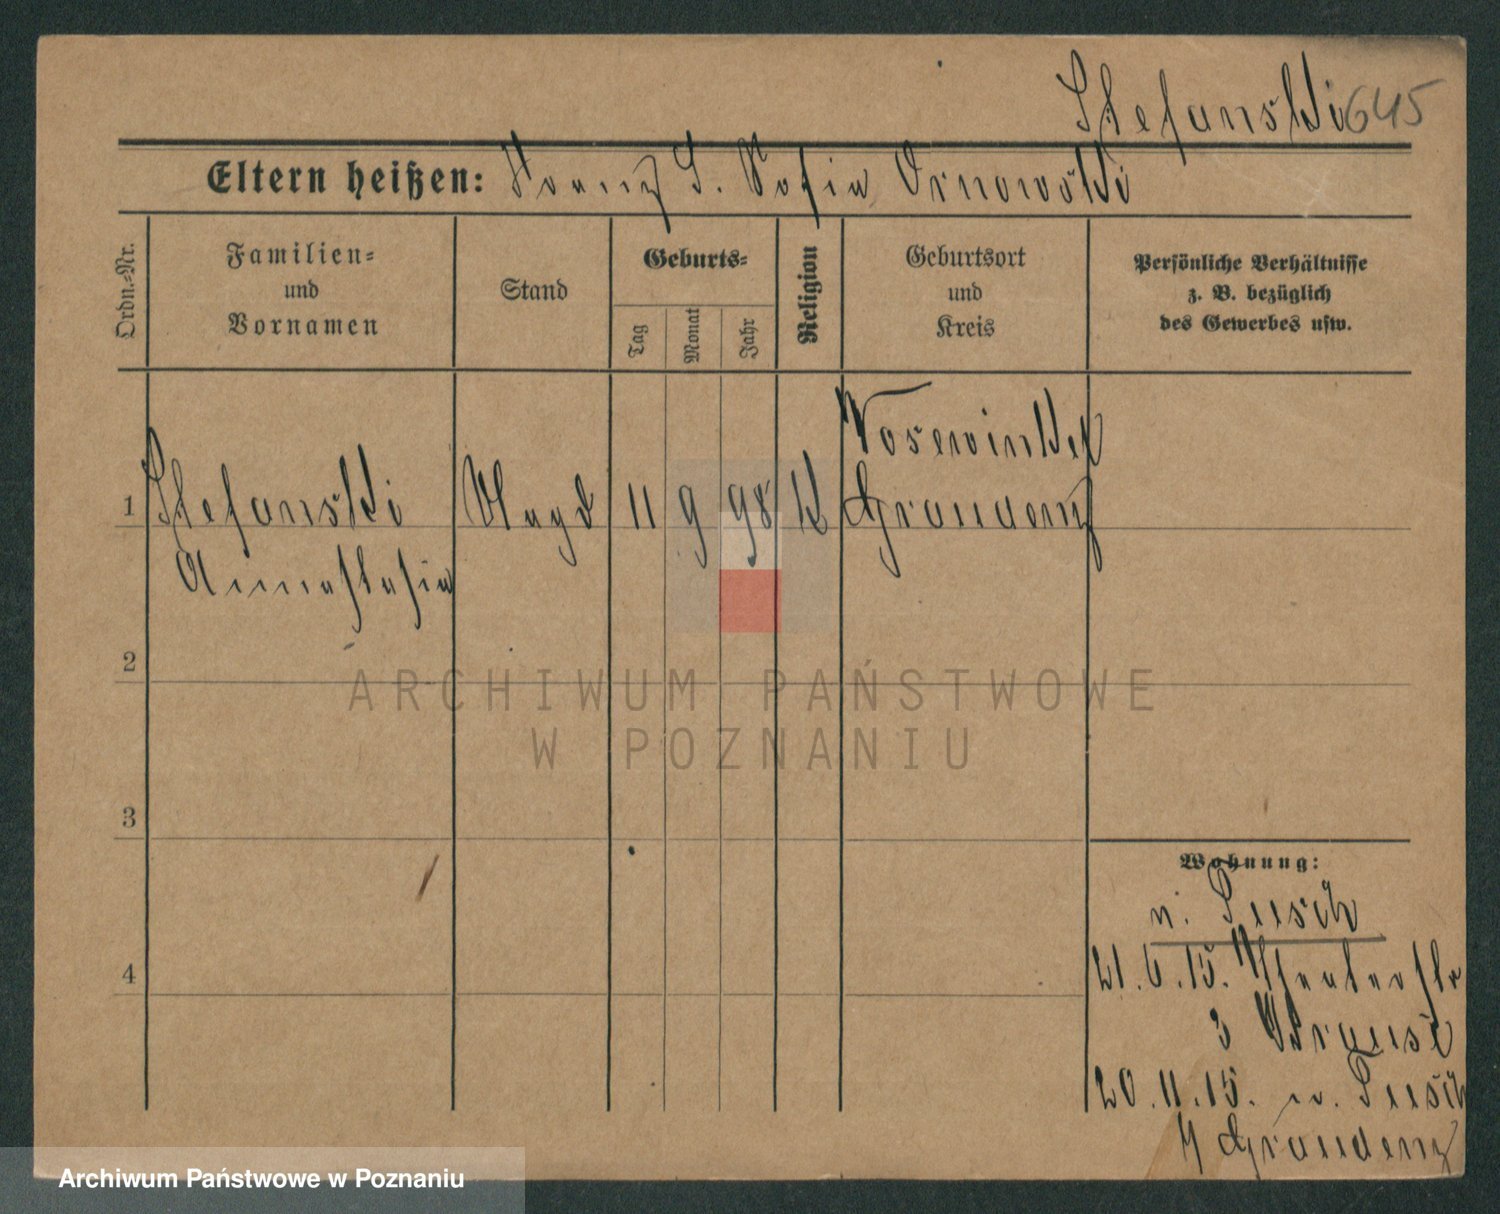 Stefanski 645
Eltern heißen: Franz S. Sofia Ornowski
Ordn.=Nr.
Familien=
und
Vornamen
Stand
Geburts=
Tag
Monat
Jahr
Religion
Geburtsort
und
Kreis
Persönliche Verhältnisse
z. B. bezüglich
des Gewerbes usw.
1 Stefanski Magd 11 9 98 K Rosewinkel
Graudenz
Annastasia
2
3
4
Wohnung:
n.
21.6.15. Theaterstr
3
20.11.15. n.
Graudenz
ARCHIWUM PAŃSTWOWE
W POZNANIU
Archiwum Państwowe w Poznaniu